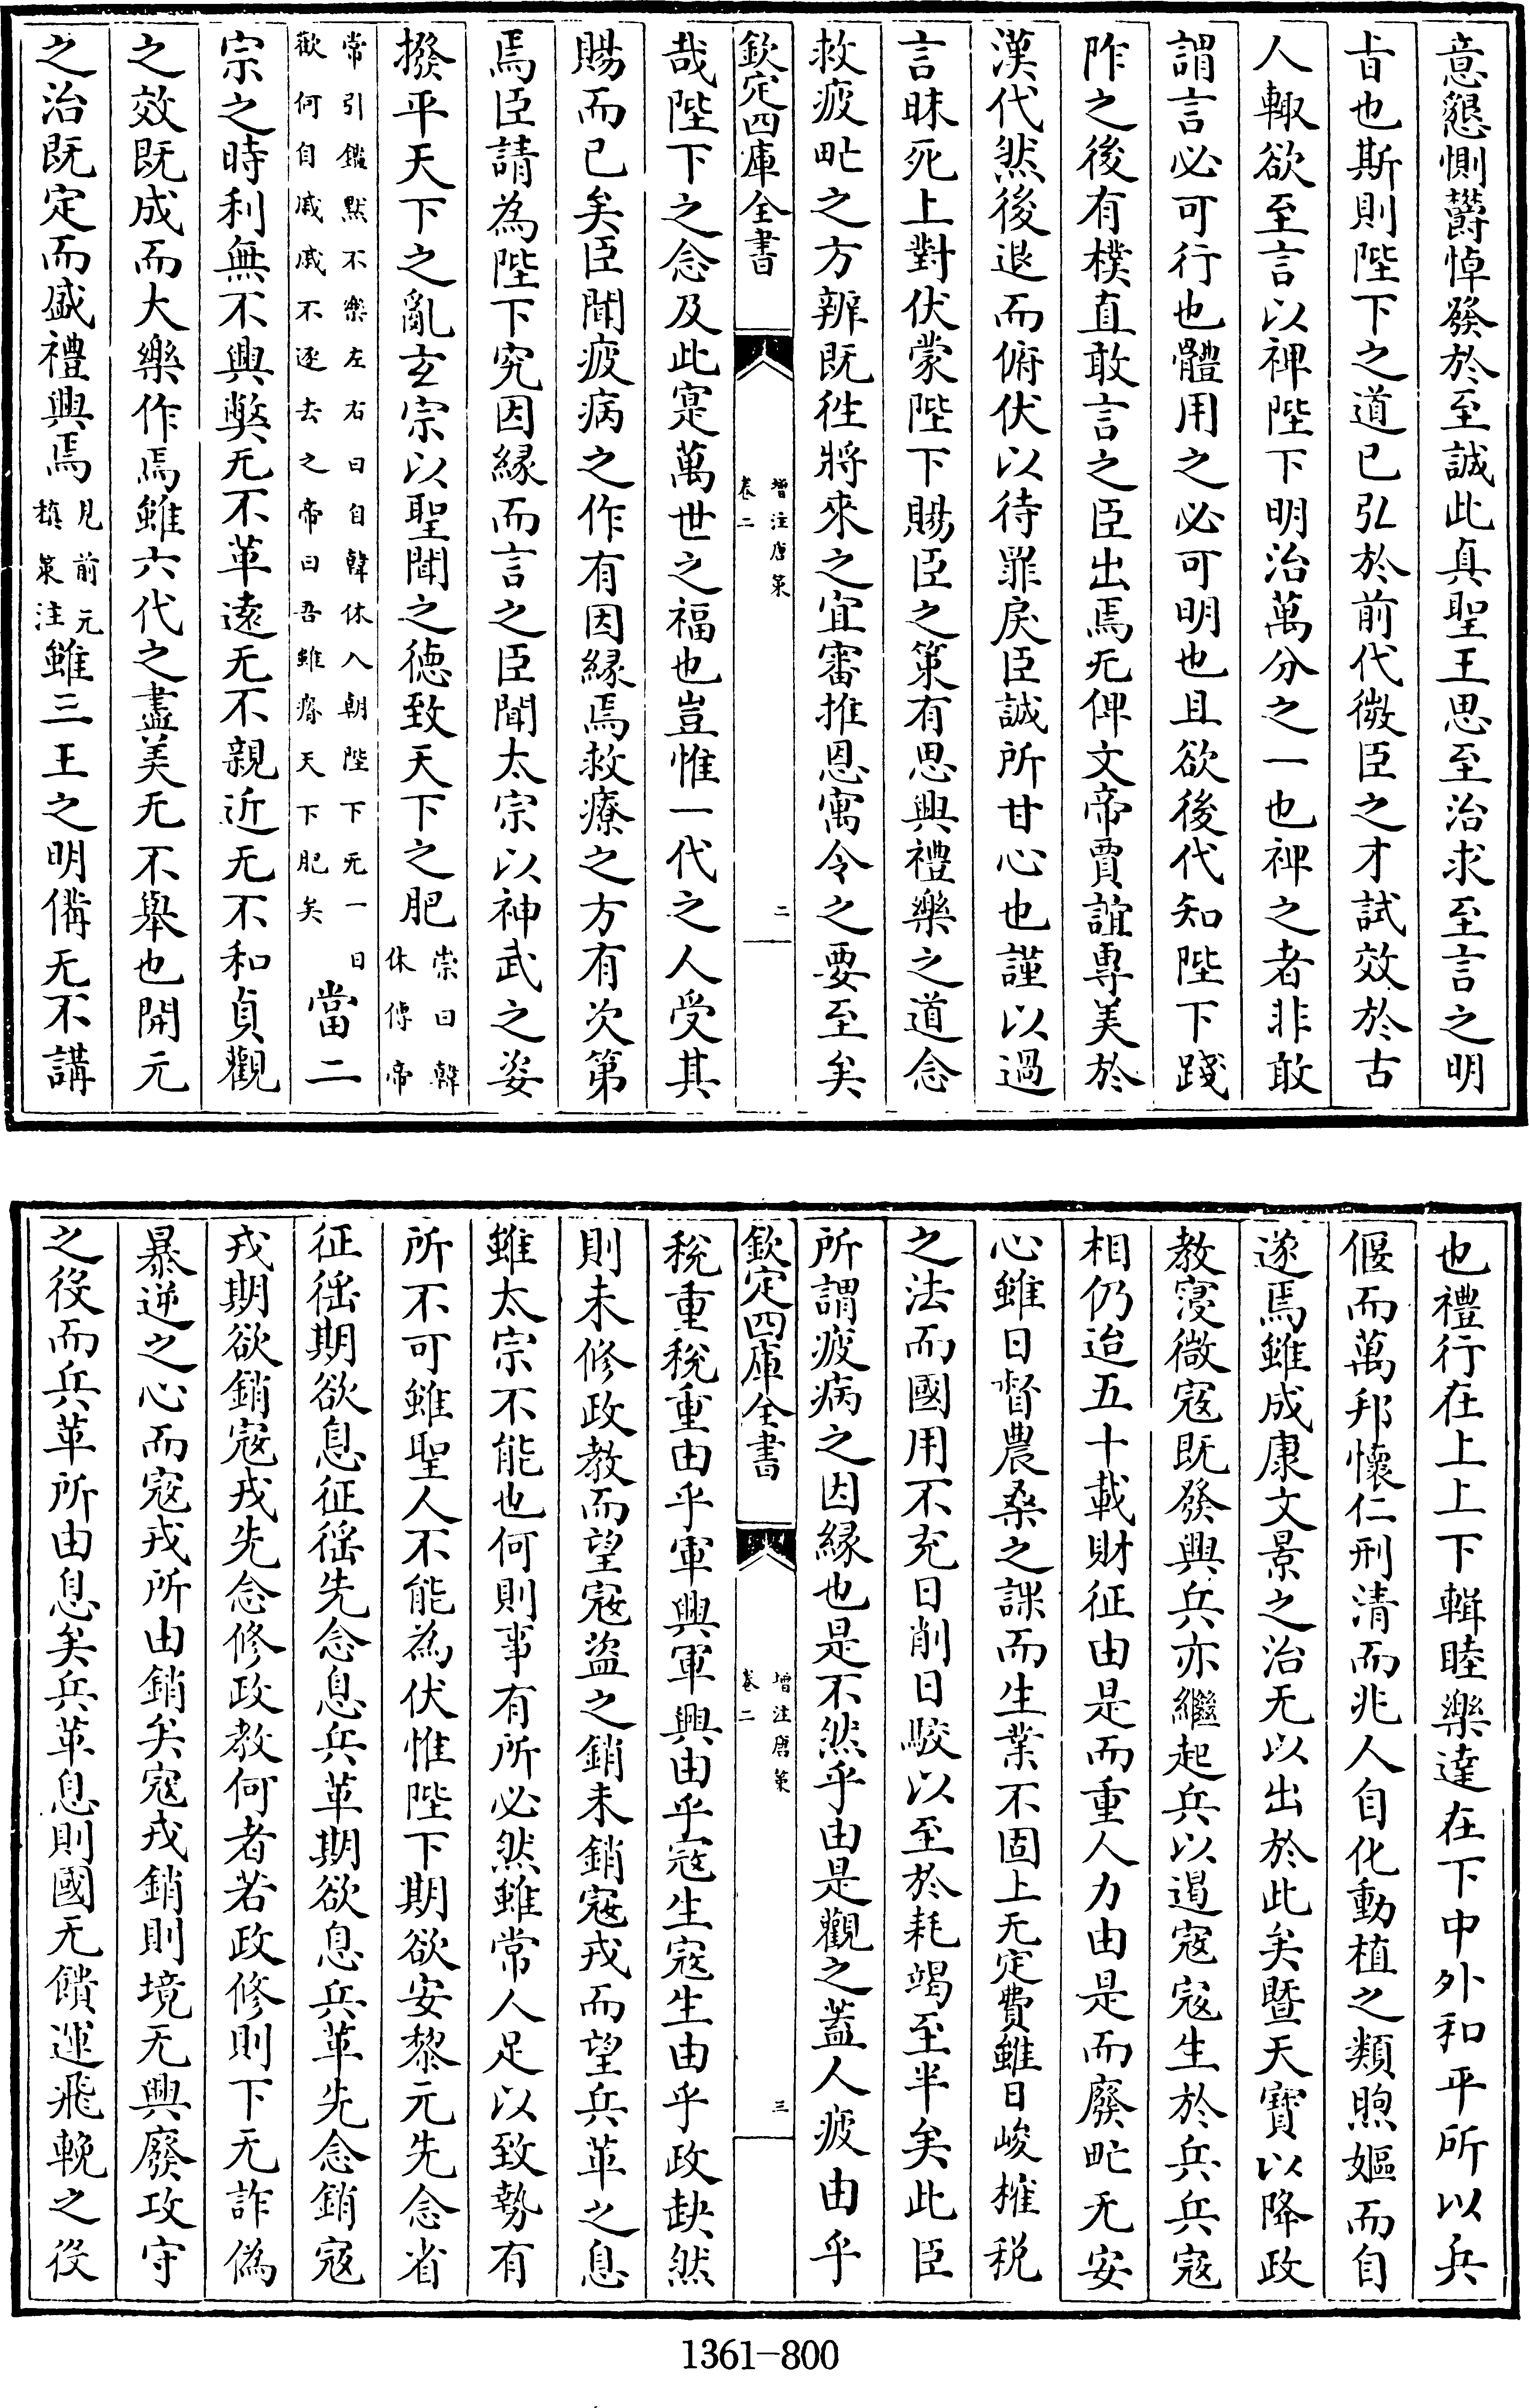 意懇惻欝悼發於至誠此真聖王思至治求至言之明
㫖也斯則陛下之道已弘於前代微臣之才試效於古
人輙欲至言以裨陛下明治萬分之一也裨之者非敢
謂言必可行也體用之必可明也且欲後代知陛下踐
阼之後有樸直敢言之臣出焉无俾文帝賈誼專美於
漢代然後退而俯伏以待罪戾臣誠所甘心也謹以過
言昧死上對伏蒙陛下賜臣之策有思興禮樂之道念
救疲甿之方辨既徃將來之宜審推恩寓令之要至矣
欽定四庫全書
增注唐策
卷二
二
哉陛下之念及此寔萬世之福也豈惟一代之人受其
賜而已矣臣聞疲病之作有因緣焉救療之方有次第
焉臣請為陛下究因緣而言之臣聞太宗以神武之姿
撥平天下之亂玄宗以聖聞之徳致天下之肥崇曰韓休傅帝
常引鑑黙不樂左右曰自韓休入朝陛下无一日歡何自戚戚不逐去之帝曰吾雖瘠天下肥矣當二
宗之時利無不興獘无不革遠无不親近无不和貞觀
之效既成而大樂作焉雖六代之盡美无不舉也開元
之治既定而盛禮興焉見前元稹策注雖三王之明備无不講
也禮行在上上下輯睦樂達在下中外和平所以兵
偃而萬邦懷仁刑清而兆人自化動植之類煦嫗而自
遂焉雖成康文景之治无以出於此矣曁天寳以降政
教寖微寇既發興兵亦繼起兵以遏寇寇生於兵兵寇
相仍迨五十載財征由是而重人力由是而廢甿无安
心雖日督農桑之課而生業不固上无定費雖日峻榷税
之法而國用不充日削日朘以至於耗竭至半矣此臣
所謂疲病之因緣也是不然乎由是觀之蓋人疲由乎
欽定四庫全書
增注唐策
卷二
三
稅重稅重由乎軍興軍興由乎寇生寇生由乎政缺然
則未修政教而望寇盗之銷未銷寇戎而望兵革之息
雖太宗不能也何則事有所必然雖常人足以致勢有
所不可雖聖人不能為伏惟陛下期欲安黎元先念省
征徭期欲息征徭先念息兵革期欲息兵革先念銷寇
戎期欲銷寇戎先念修政教何者若政修則下无詐偽
暴逆之心而寇戎所由銷矣寇戎銷則境无興廢攻守
之役而兵革所由息矣兵革息則國无饋運飛輓之役
1361-800